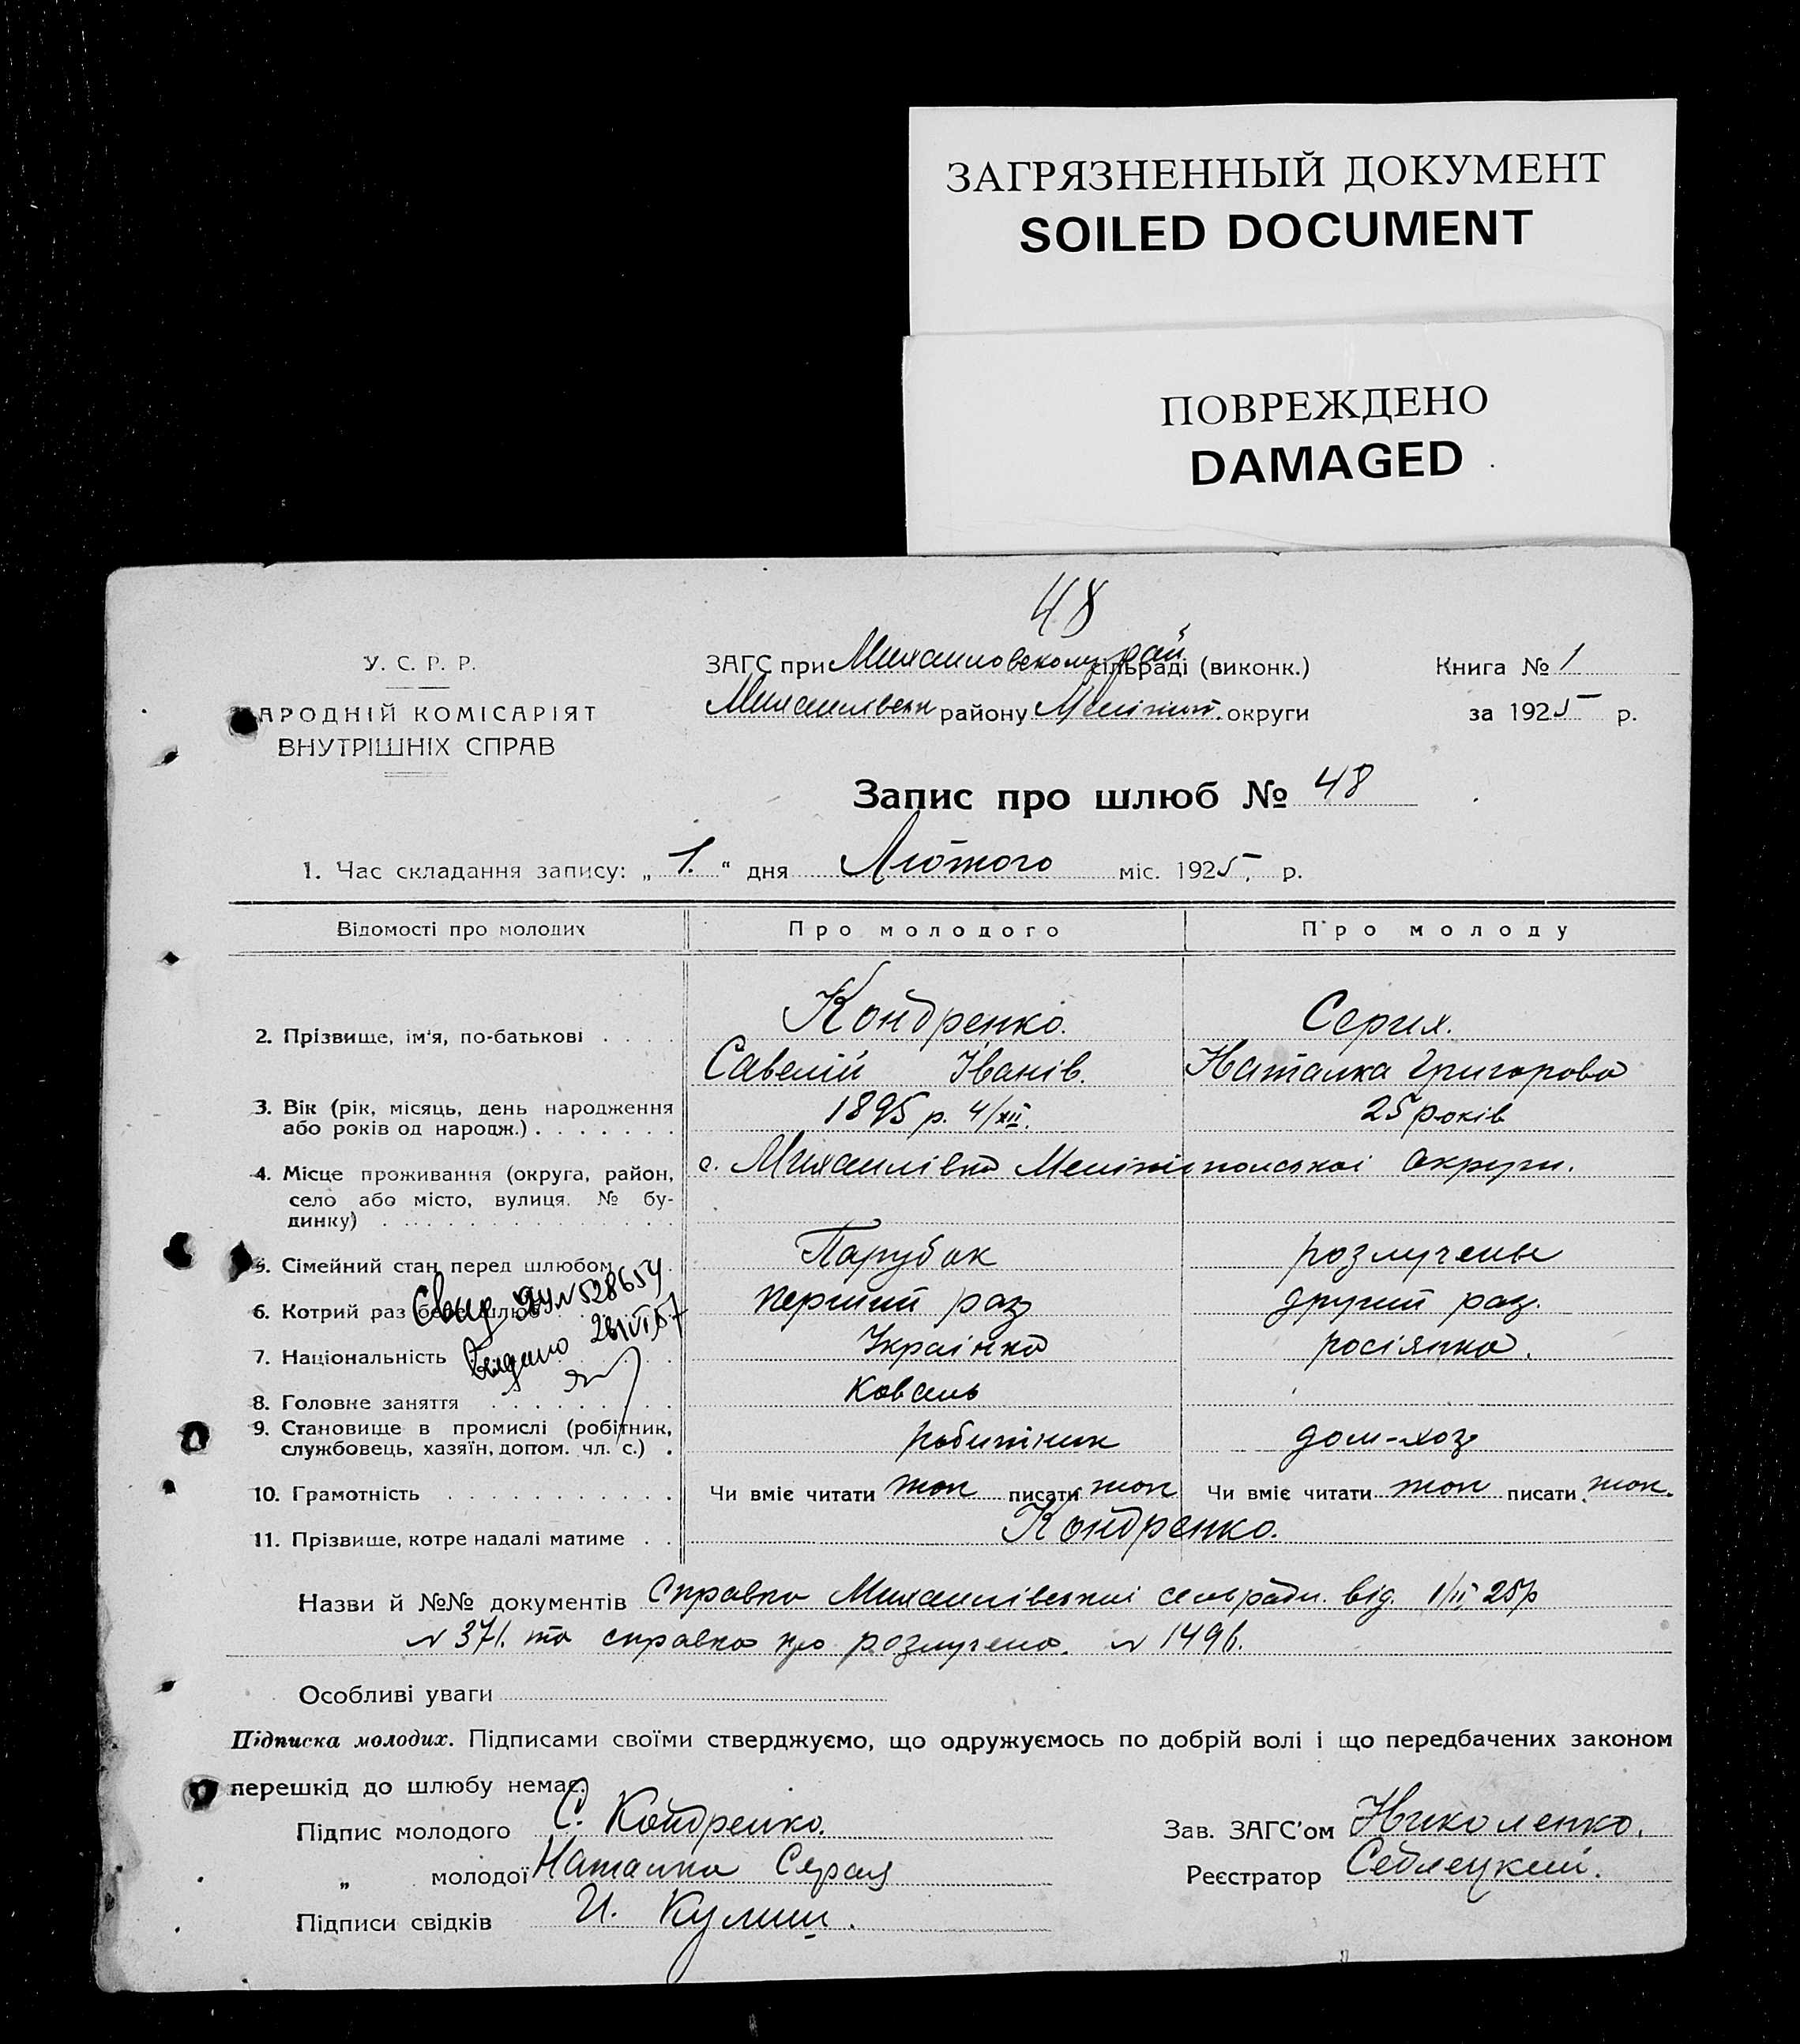 ЗАГРЯЗНЕННЫЙ ДОКУМЕНТ
SOILED DOCUMENT
ПОВРЕЖДЕНО
DAMAGED
48
У. С. Р. Р.
АРОДНІЙ КОМІСАРІЯТ
ВНУТРІШНІХ СПРАВ
ЗАГС при Михаиловскому рай сільраді (виконк.)
Михаилівськ району Меліт. округи
Книга № 1
за 1925 р.
Запис про шлюб № 48
1. Час складання запису: „ 1. “ дня Лютого міс. 1925. р.
Відомості про молодих Про молодого Про молоду
2. Прізвище, ім'я, по-батькові Кондренко.
Савелій Іванів. Наталка Григорова
3. Вік (рік, місяць, день народження або років од народж.) 1895 р. 4/XII. 25 років
4. Місце проживання (округа, район, село або місто, вулиця. № будинку) с. Михаилівка Мелітопольскої округи.
5. Сімейний стан перед шлюбом Парубок розлучены
6. Котрий раз бере шлюб перший раз другий раз.
7. Національність Украінка росіянка.
8. Головне заняття коваль
9. Становище в промислі (робітник, службовець, хазяїн, допом. чл. с.) робитник дом-хоз
10. Грамотність Чи вміє читати так писати так Чи вміє читати так писати так.
11. Прізвище, котре надалі матиме Кондренко.
№ 528654
Видано 28/VI 57
Назви й №№ документів Справка Михаилівської сельради. від. 1/II 25р
№ 371. та справка про розлучено. № 1496.
Особливі уваги
Підписка молодих. Підписами своїми стверджуємо, що одружуємось по добрій волі і що передбачених законом
перешкід до шлюбу немає.
Підпис молодого С. Кондренко.
„ молодої Наталка
Підписи свідків И. Кулиш.
Зав. ЗАГС'ом Николенко.
Реєстратор Седлецкий.